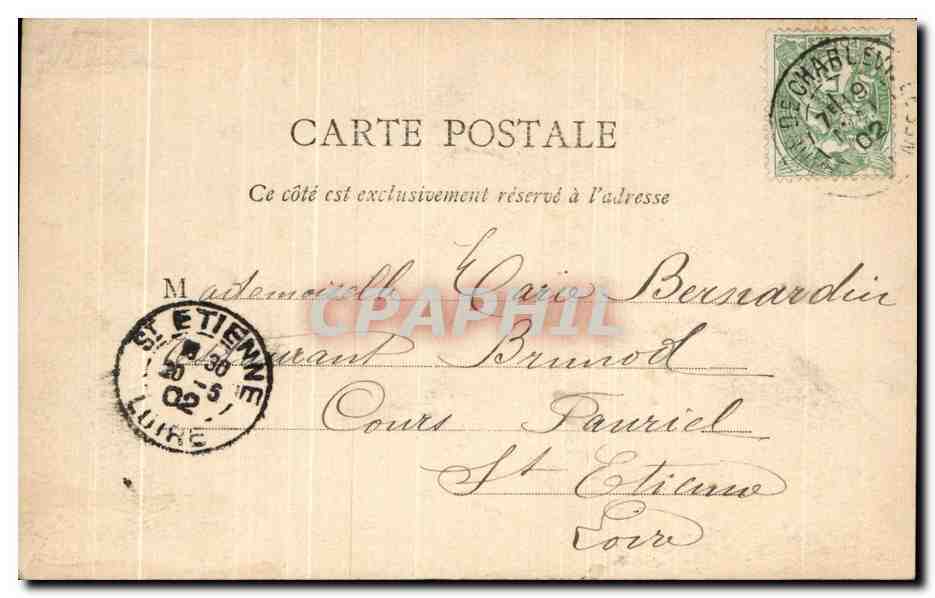 CARTE POSTALE
Ce côté est exclusivement réservé à l'adresse
Mademoiselle Bernardin
Restaurant Brunod
Cours Fauriel
St Etienne
Loire
ST ETIENNE
30
20 -5
02
LOIRE
DE CHARLEV
19
02
CPAPHIL